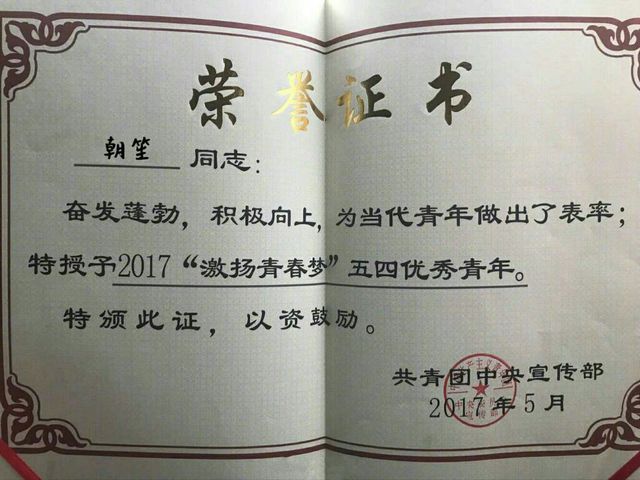 荣誉证书
朝笙 同志：
奋发蓬勃，积极向上，为当代青年做出了表率；
特授予2017“激扬青春梦”五四优秀青年。
特颁此证，以资鼓励。
共青团中央宣传部
2017年5月